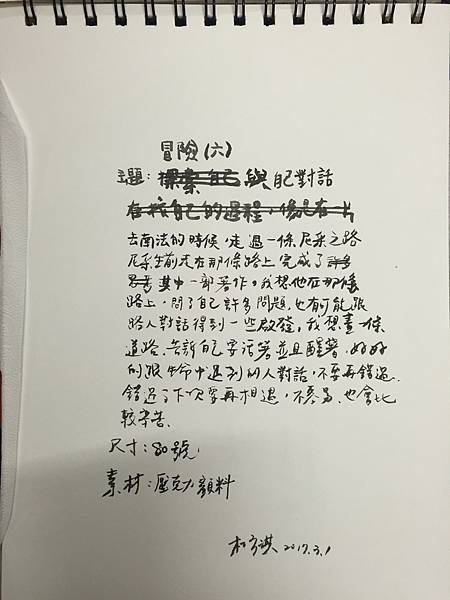 冒險(六)
主題：探索自己與自己對話
在找自己的過程，像是在一片
去南法的時候，走過一條尼采之路
尼采生前走在那條路上完成了許多
思考其中一部著作。我想他在那條
路上，問了自己許多問題，也有可能跟
路人對話得到一些啟發，我想畫一條
道路，告訴自己要活著並且醒著，好好
的跟生命中遇到的人對話，不要再錯過.
錯過了下次要再相遇，不容易、也會比
較辛苦.
尺寸：80號
素材：壓克力顏料
2017.3.1